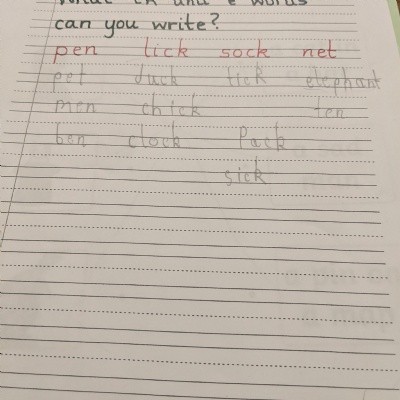 What ck and e words
can you write?
pen lick sock net
pet duck tick elephant
men chick ten
ben clock Pack
sick